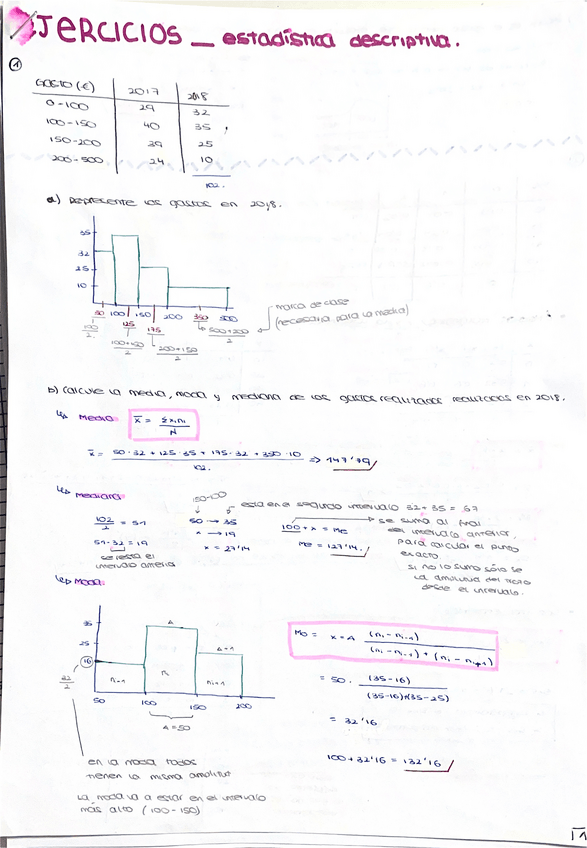 EJERCICIOS _ estadística descriptiva.
①
GASTO (€) 2017 2018
0-100 29 32
100-150 40 35
150-200 39 25
200-500 24 10
102.
a) Represente los gastos en 2018.
35
32
25
10
50 100 150 200 350 500
125 175
100/2
100+150/2
200+150/2
500+200/2
marca de clase
(necesaria para la media)
b) Calcule la media, moda y mediana de los gastos realizados realizados en 2018.
↳ Media x̄ = Σxini / N
x̄ = 50·32 + 125·35 + 175·32 + 350·10 / 102. ⇒ 147'79
↳ Mediana
50-100
está en el segundo intervalo 32+35 = 67
102/2 = 51
51-32 = 19
se resta el
intervalo anterior
50 → 35
x → 19
x = 27'14
100 + x = Me
Me = 127'14.
se suma al final
del intervalo anterior,
para calcular el punto
exacto.
si no lo sumo sólo se
la amplitud del trozo
desde el intervalo.
↳ Moda
35
25
16
32/2
ni-1 ni ni+1
50 100 150 200
A = 50
Mo = x = A (ni - ni-1) / (ni - ni-1) + (ni - ni+1)
= 50 · (35-16) / (35-16)+(35-25)
= 32'16
100 + 32'16 = 132'16
en la moda todos
tienen la misma amplitud
La moda va a estar en el intervalo
más alto (100-150)